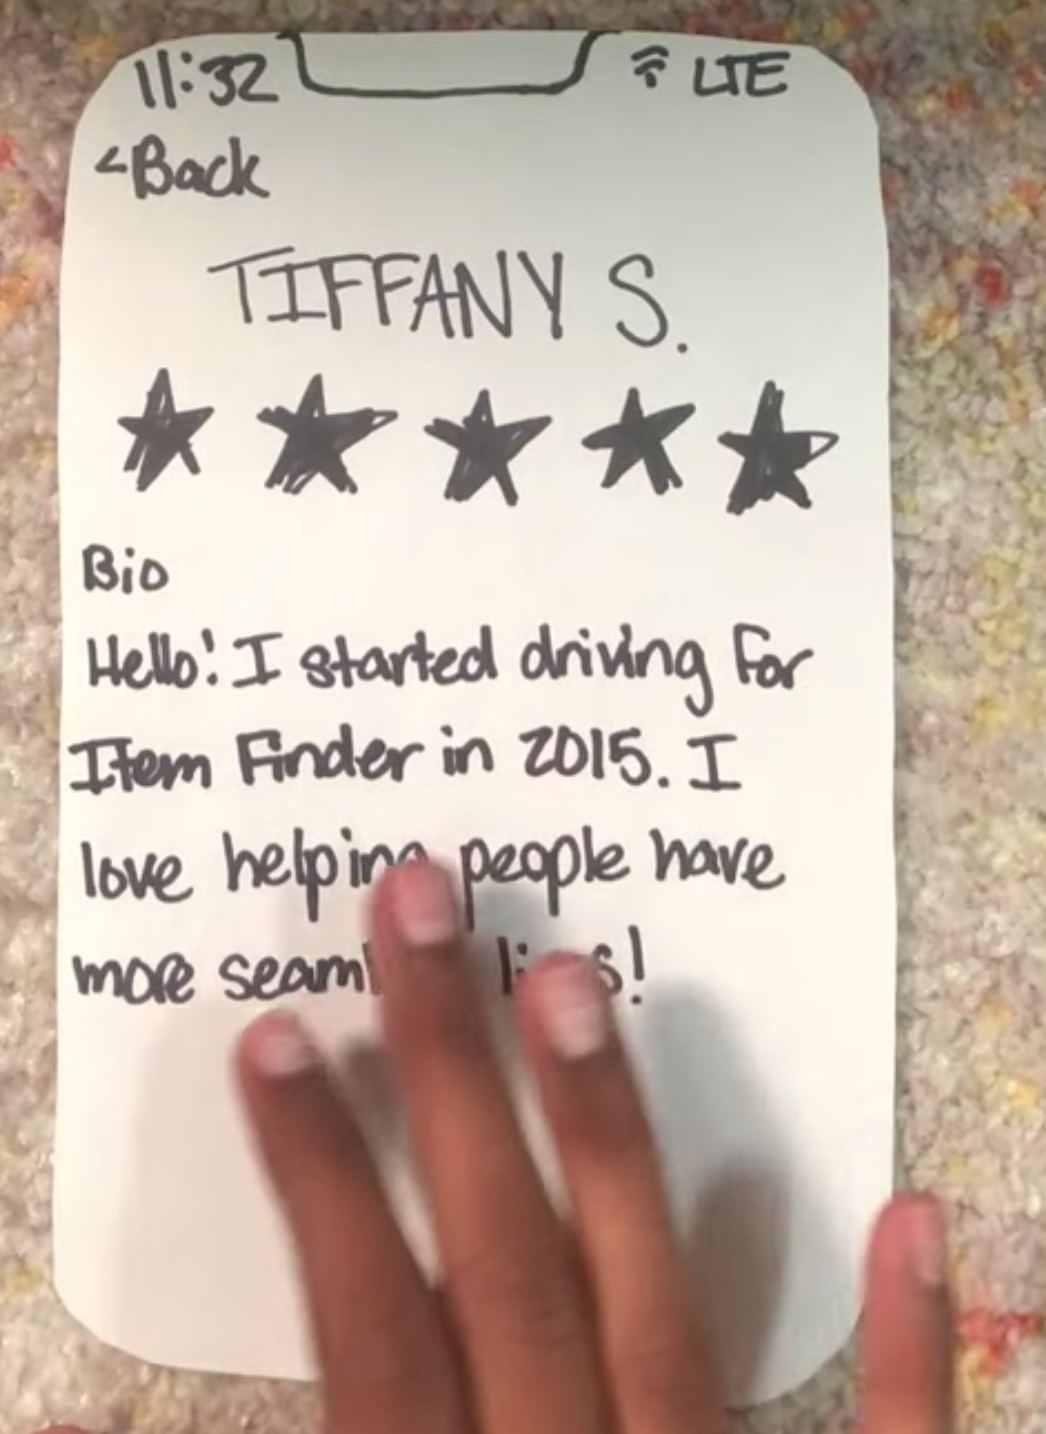 11:32 LTE
<Back
TIFFANY S.
Bio
Hello! I started driving for
Item Finder in 2015. I
love helping people have
more